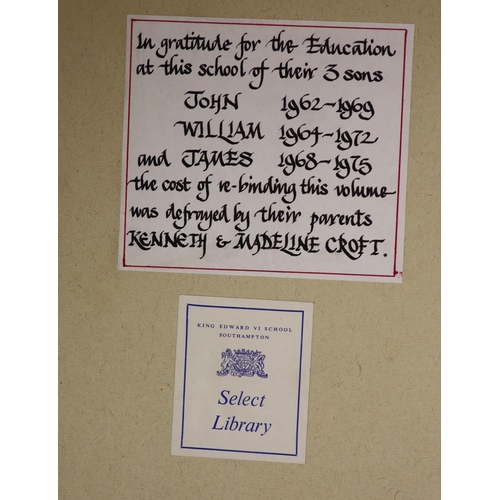 In gratitude for the Education
at this school of their 3 sons
JOHN 1962-1969
WILLIAM 1964-1972
and JAMES 1968-1975
the cost of re-binding this volume
was defrayed by their parents
KENNETH & MADELINE CROFT.
KING EDWARD VI SCHOOL
SOUTHAMPTON
Select
Library